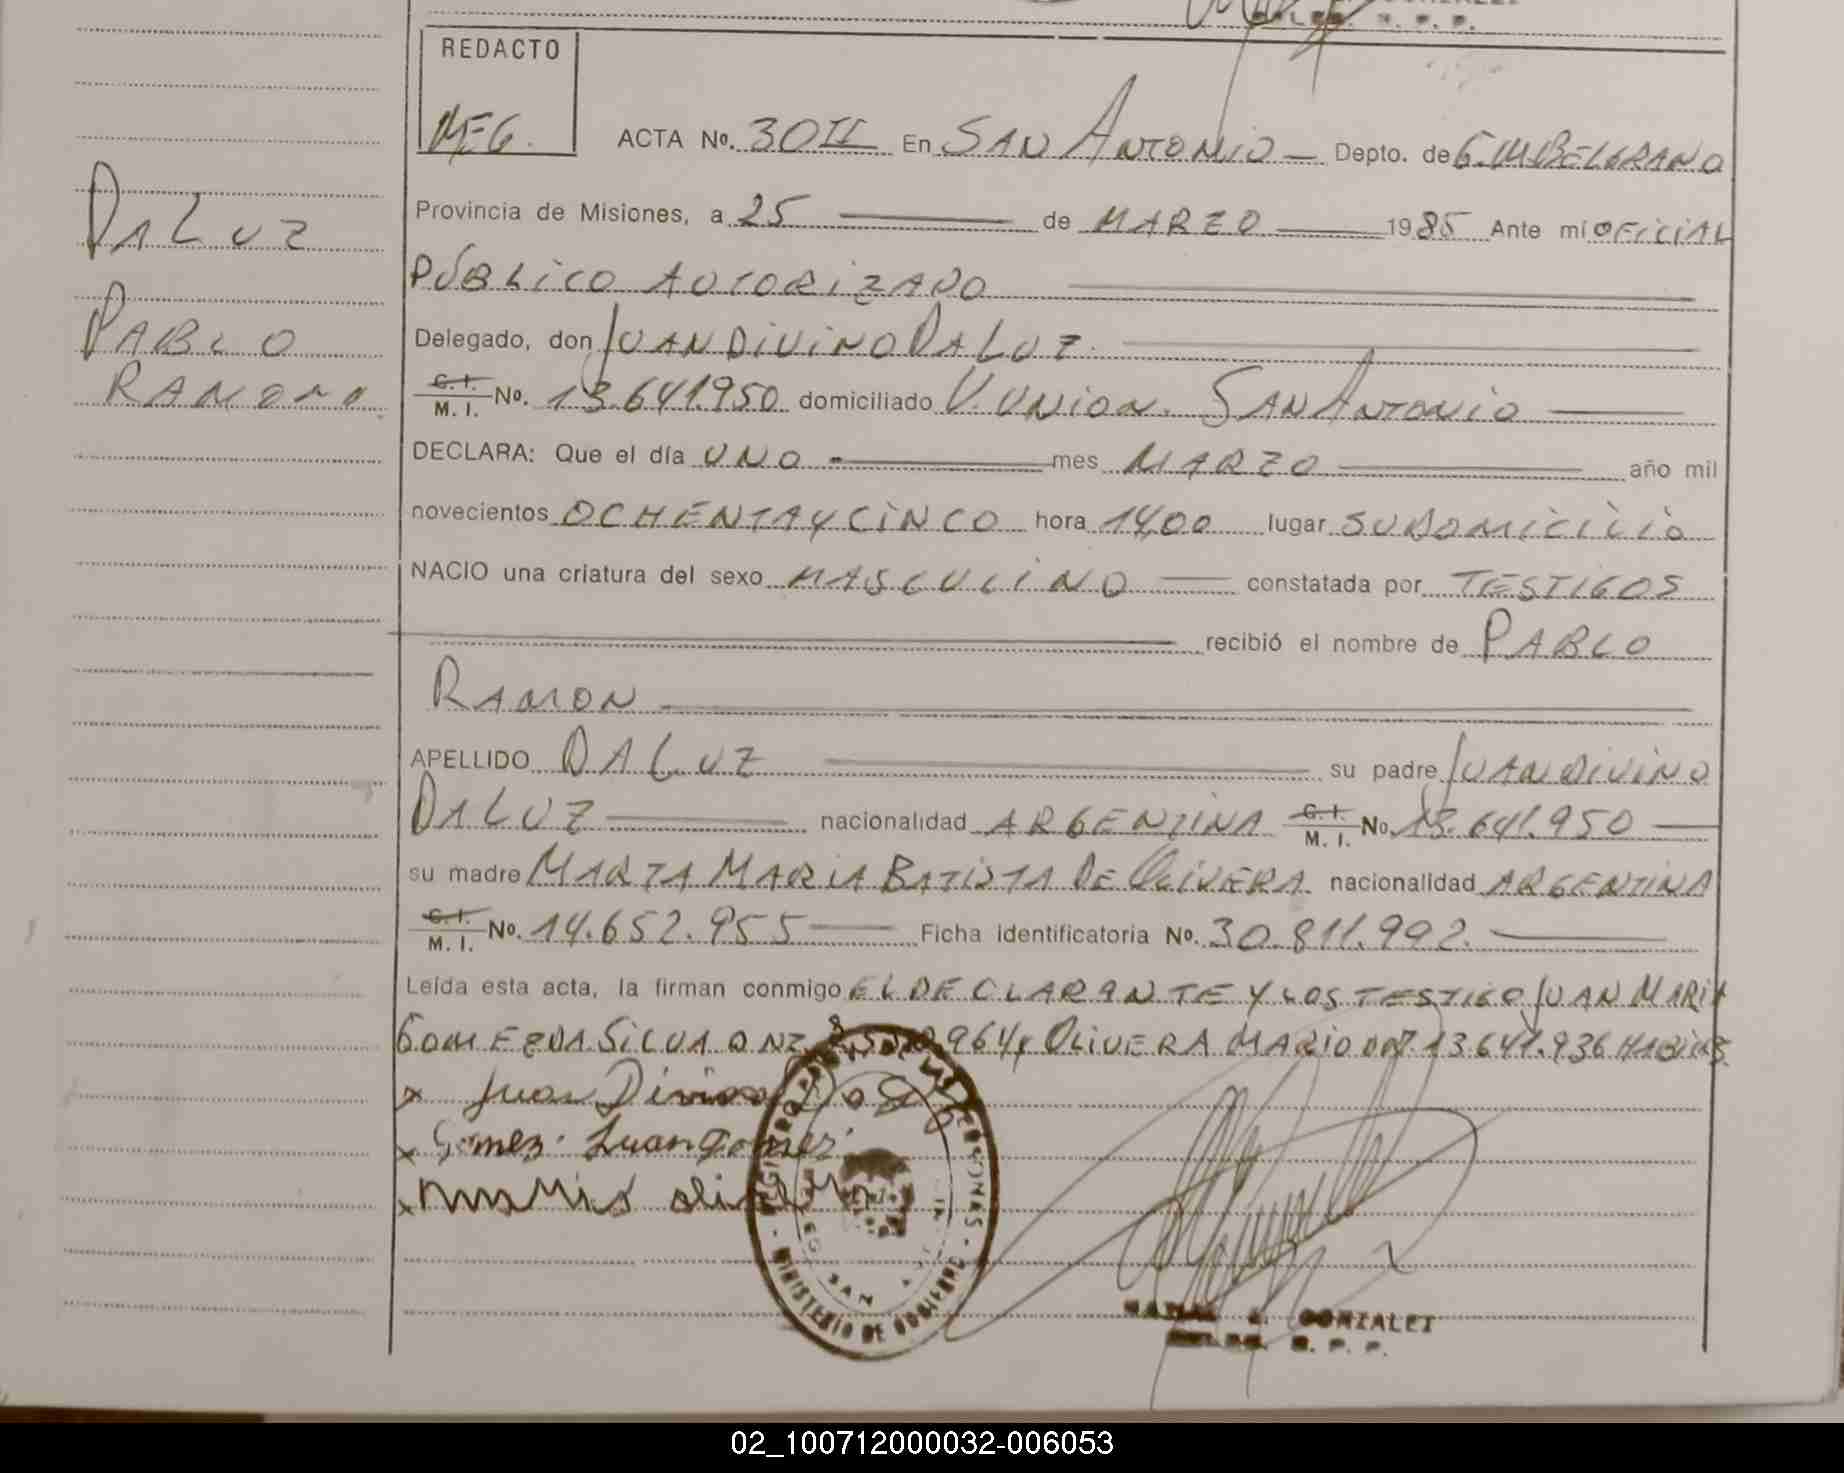 REDACTO
MEG.
ACTA No. 30 II En SAN ANTONIO Depto. de G.M.BELGRANO
DA LUZ
Provincia de Misiones, a 25 de MARZO 1985 Ante mí OFICIAL
PÚBLICO AUTORIZADO
PABLO
Delegado, don JUAN DIVINO DA LUZ.
RAMON
C. I. M. I. No. 13.641.950 domiciliado V. UNION. SAN ANTONIO
DECLARA: Que el día UNO mes MARZO año mil
novecientos OCHENTA Y CINCO hora 14,00 lugar SU DOMICILIO
NACIO una criatura del sexo MASCULINO constatada por TESTIGOS
recibió el nombre de PABLO
RAMON
APELLIDO DA LUZ su padre JUAN DIVINO
DA LUZ nacionalidad ARGENTINA C. I. M. I. No. 13.641.950
su madre MARTA MARIA BATISTA DE OLIVERA nacionalidad ARGENTINA
C. I. M. I. No. 14.652.955 Ficha identificatoria No. 30.811.992.
Leída esta acta, la firman conmigo EL DECLARANTE Y LOS TESTIGO JUAN MARIA
GOMEZ DA SILVA 964 y OLIVERA MARIO 13.641.936
x Juan Divino Da
x Gomez Juan Gomez
x
MINISTERIO DE GOBIERNO
SAN
GONZALEZ
R. P. P.
02_100712000032-006053